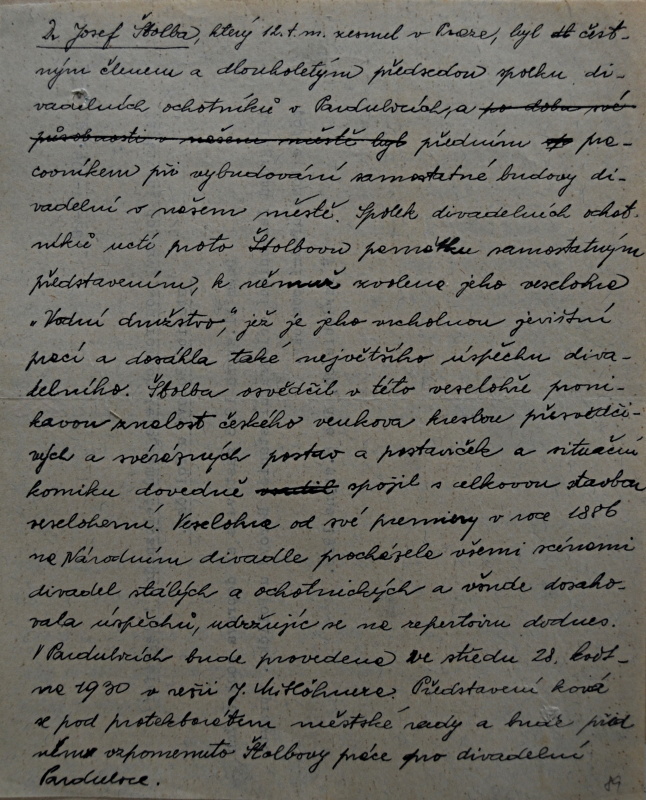 Dr Josef Štolba, který 12.t.m. zesnul v Praze, byl čest-
ným členem a dlouholetým předsedou spolku di-
vadelních ochotníků v Pardubicích, a po dobu své
působnosti v našem městě byl předním pra-
covníkem při vybudování samostatné budovy di-
vadelní v našem městě. Spolek divadelních ochot-
níků uctí proto Štolbovu památku samostatným
představením, k němuž zvolena jeho veselohra
„Vodní družstvo", jež je jeho vrcholnou jevištní
prací a dosáhla také největšího úspěchu diva-
delního. Štolba osvědčil v této veselohře proni-
kavou znalost českého venkova kresbou přesvědči-
vých a svérázných postav a postaviček a situační
komiku dovedně spojil s celkovou stavbou
veseloherní. Veselohra od své premiery v roce 1886
na Národním divadle procházela všemi scénami
divadel stálých a ochotnických a všude dosaho-
vala úspěchů, udržujíc se na repertoiru dodnes.
V Pardubicích bude provedena ve středu 28. květ-
na 1930 v režii J. Mitlöhnera. Představení koná
se pod protektorátem městské rady a bude před
ním vzpomenuto Štolbovy práce pro divadelní
Pardubice.
89